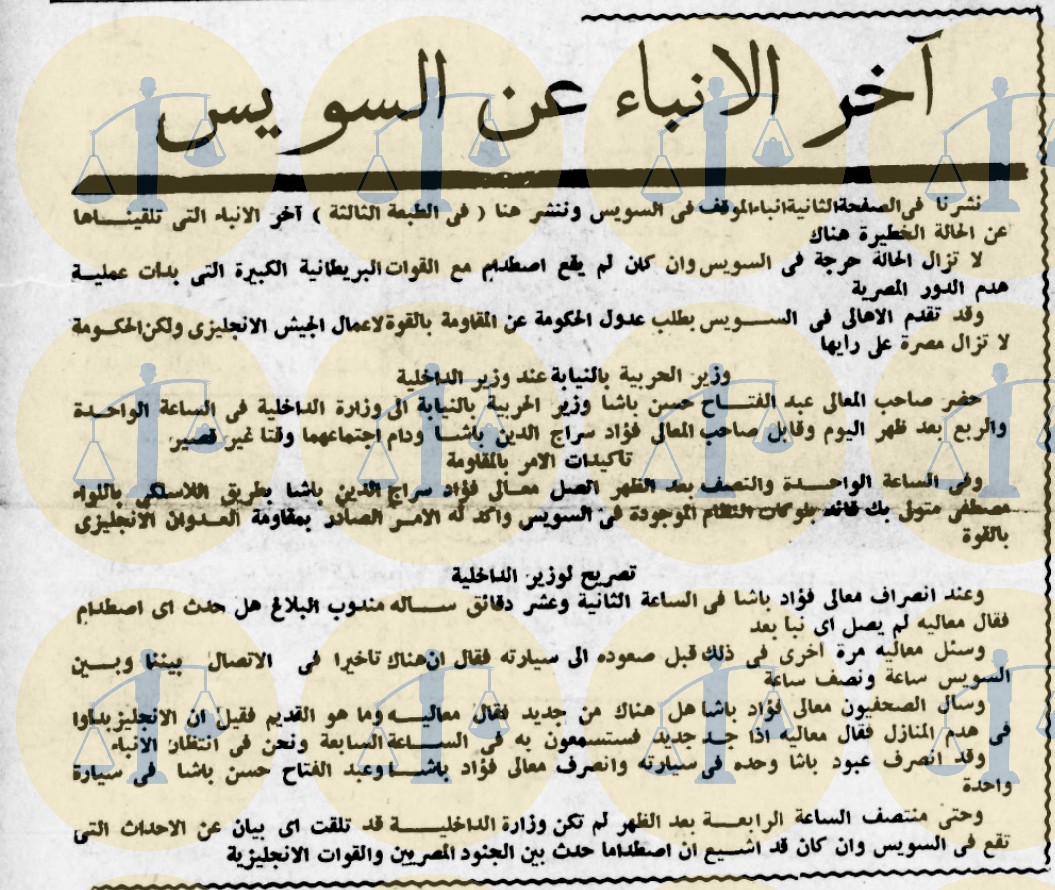 آخر الانباء عن السويس
نشرنا فى الصفحة الثانية انباء الموقف فى السويس وننشر هنا ( فى الطبعة الثالثة ) آخر الانباء التى تلقينـــاها
عن الحالة الخطيرة هناك
لا تزال الحالة حرجة فى السويس وان كان لم يقع اصطدام مع القوات البريطانية الكبيرة التى بدات عمليـة
هدم الدور المصرية
وقد تقدم الاهالى فى الســـويس بطلب عدول الحكومة عن المقاومة بالقوة لاعمال الجيش الانجليزى ولكن الحكـومة
لا تزال مصرة على رايها
وزير الحربية بالنيابة عند وزير الداخلية
حضر صاحب المعالى عبد الفتـــاح حسن باشا وزير الحربية بالنيابة الى وزارة الداخلية فى الساعة الواحـدة
والربع بعد ظهر اليوم وقابل صاحب المعالى فؤاد سراج الدين باشـا ودام اجتماعهما وقتا غير قصير
تاكيدات الامر بالمقاومة
وفى الساعة الواحـــدة والنصف بعد الظهر اتصل معـالى فؤاد سراج الدين باشا بطريق اللاسلكى باللواء
مصطفى متولى بك قائد بلوكات النظام الموجودة فى السويس واكد له الامـر الصادر بمقاومة العـدوان الانجليزى
بالقوة
تصريح لوزير الداخلية
وعند انصراف معالى فؤاد باشا فى الساعة الثانية وعشر دقائق ســاله مندوب البلاغ هل حدث اى اصطدام
فقال معاليه لم يصل اى نبا بعد
وسئل معاليه مرة اخرى فى ذلك قبل صعوده الى سيارته فقال ان هناك تاخيرا فى الاتصال بيننا وبـــين
السويس ساعة ونصف ساعة
وسال الصحفيون معالى فؤاد باشا هل هناك من جديد فقال معاليـــه وما هو القديم فقيل ان الانجليز بداوا
فى هدم المنازل فقال معاليه اذا جـد جديد فستسمعون به فى الســـاعة السابعة ونحن فى انتظار الانباء
وقد انصرف عبود باشا وحده فى سيارته وانصرف معالى فؤاد باشـــا وعبد الفتاح حسن باشا فى سيارة
واحدة
وحتى منتصف الساعة الرابعـــة بعد الظهر لم تكن وزارة الداخليـــة قد تلقت اى بيان عن الاحداث التى
تقع فى السويس وان كان قد اشـيع ان اصطداما حدث بين الجنود المصريين والقوات الانجليزية